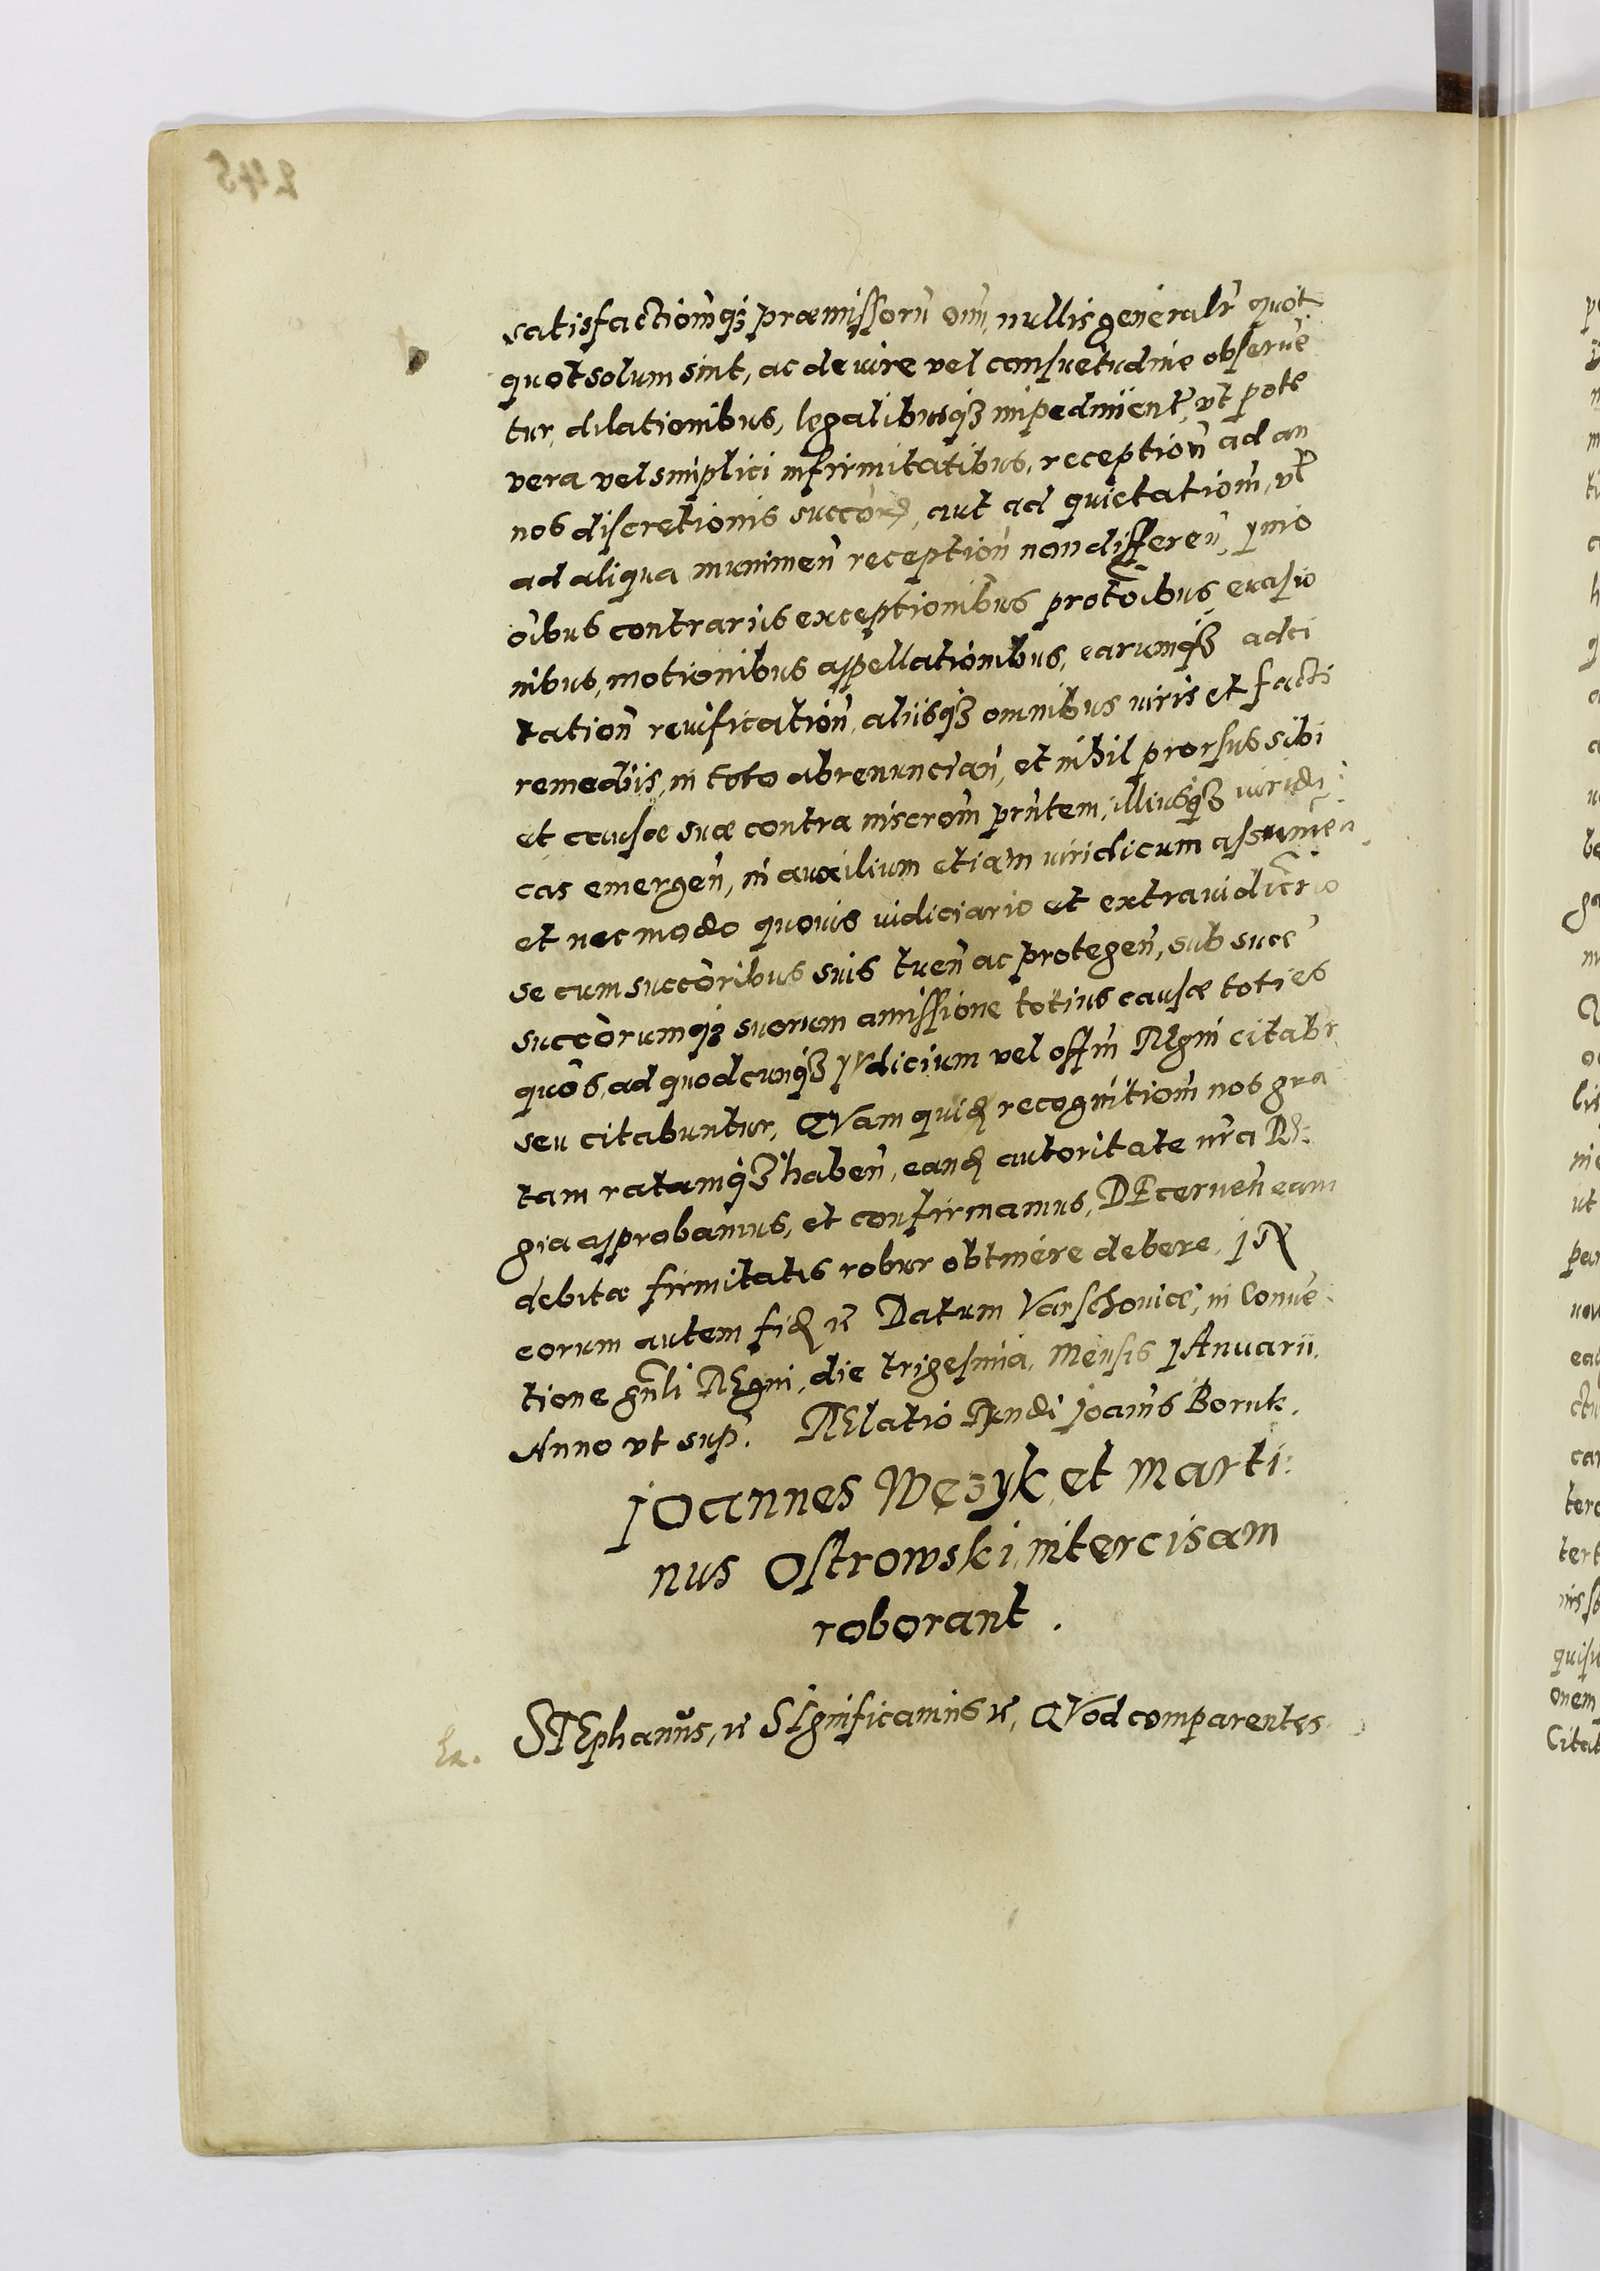 satisfactiom̃q₃ præmissorũ om̃, nullis generalr̃ quot
quot solum sint, ac de iure vel consuetudine obserue
tur, dilationibus, legalibusq₃ impedimentr̃, vt pote
vera vel simplici infirmitatibus, receptioñ ad an
nos discretionis succõr, aut ad quietatiom̃, vl̃
ad aliqua munimeñ receptioñ non differeñ, ymo
oĩbus contrariis exceptionibus protõibus euasio
nibus, motionibus appellationibus, earumq₃ adci
tatioñ reuificatioñ, aliisq₃ omnibus iuris et facti
remediis, in toto abrenuncĩañ, et nihil prorsus sibi
et causæ suæ contra inscrom̃ prñtem, illiusq₃ iuridi
cas emergeñ, in auxilium etiam iuridicum assumeñ,
et nec modo quouis iudiciario et extraiudicr̃io
se cum succõribus suis tueñ ac protegeñ, sub suæ
succõrumq₃ suorum amissione totius causæ toties
quõs, ad quodcunq₃ Iudicium vel offm̃ REgni citabr̃
seu citabuntur, QVam quid recognitiom̃ nos gra
tam ratamq₃ habeñ, eand autoritate nr̃a RE
gia approbamus, et confirmamus, DEcerneñ eam
debitæ firmitatis robur obtinere debere, IN
eorum autem fid &c Datum Varschouiæ, in Conue
tione gñli REgni, die trigesima, Mensis IAnuarii
Anno vt sup̃. RElatio Rñdi Joañis Boruk.
JOannes Węzyk et Marti
nus Ostrowski, intercisam
roborant.
Ex. STEphanus, &c SIgnificamus &c, QVod comparentes